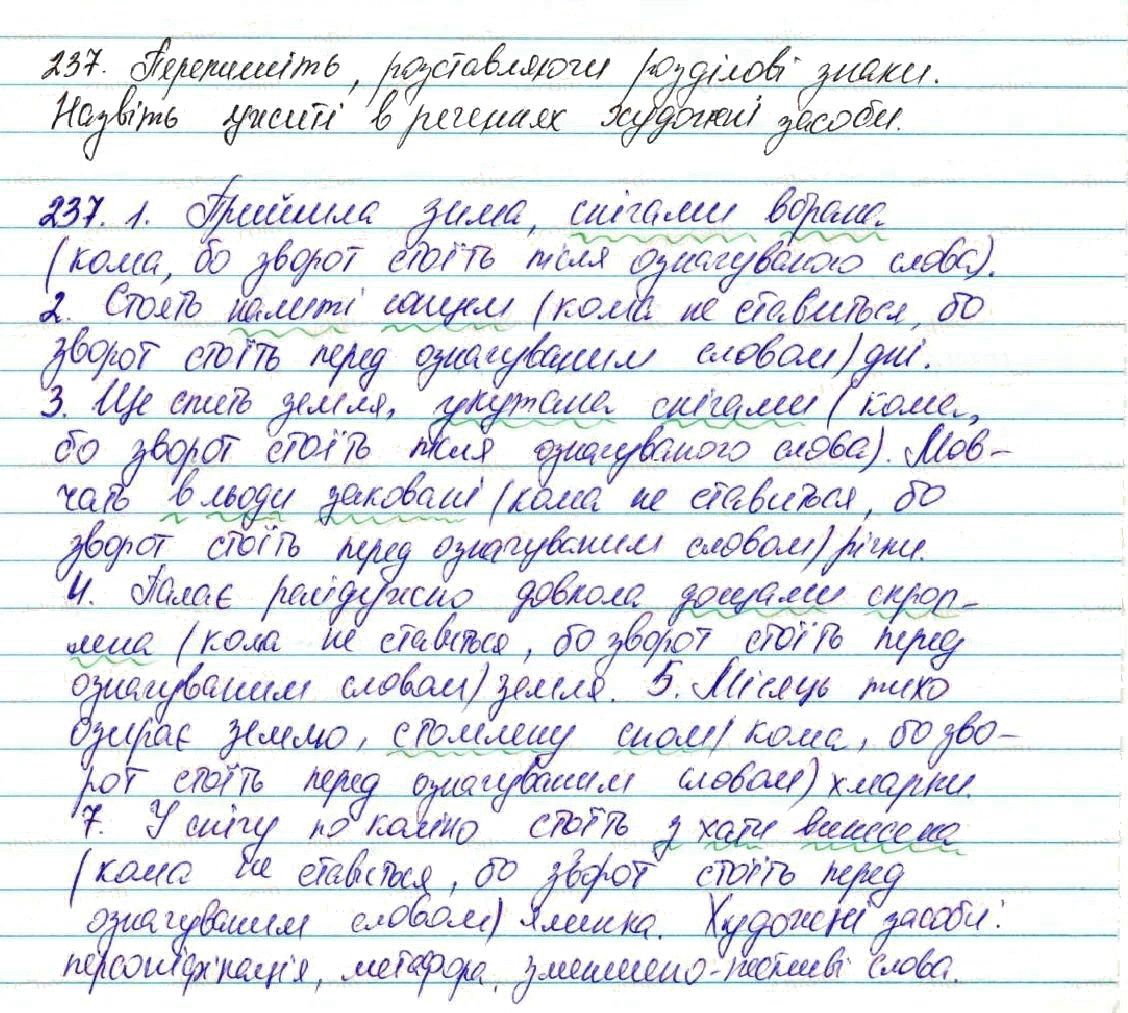 237. Перепишіть, розставляючи розділові знаки.
Назвіть ужиті в реченнях художні засоби.
237. 1. Прийшла зима, снігами вбрана
(кома, бо зворот стоїть після означуваного слова).
2. Стоять налиті сонцем (кома не ставиться, бо
зворот стоїть перед означуваним словом) дні.
3. Ще спить земля, укутана снігами (кома,
бо зворот стоїть після означуваного слова). Мов-
чать в льоди заковані (кома не ставиться, бо
зворот стоїть перед означуваним словом) річки.
4. Палає райдужно довкола дощами скроп-
лена (кома не ставиться, бо зворот стоїть перед
означуваним словом) земля. 5. Місяць тихо
озирає землю, стомлену сном (кома, бо зво-
рот стоїть перед означуваним словом) хмарки.
7. У снігу по коліно стоїть з хати винесена
(кома не ставиться, бо зворот стоїть перед
означуваним словом) ялинка. Художні засоби:
персоніфікація, метафора, зменшено-пестливі слова.